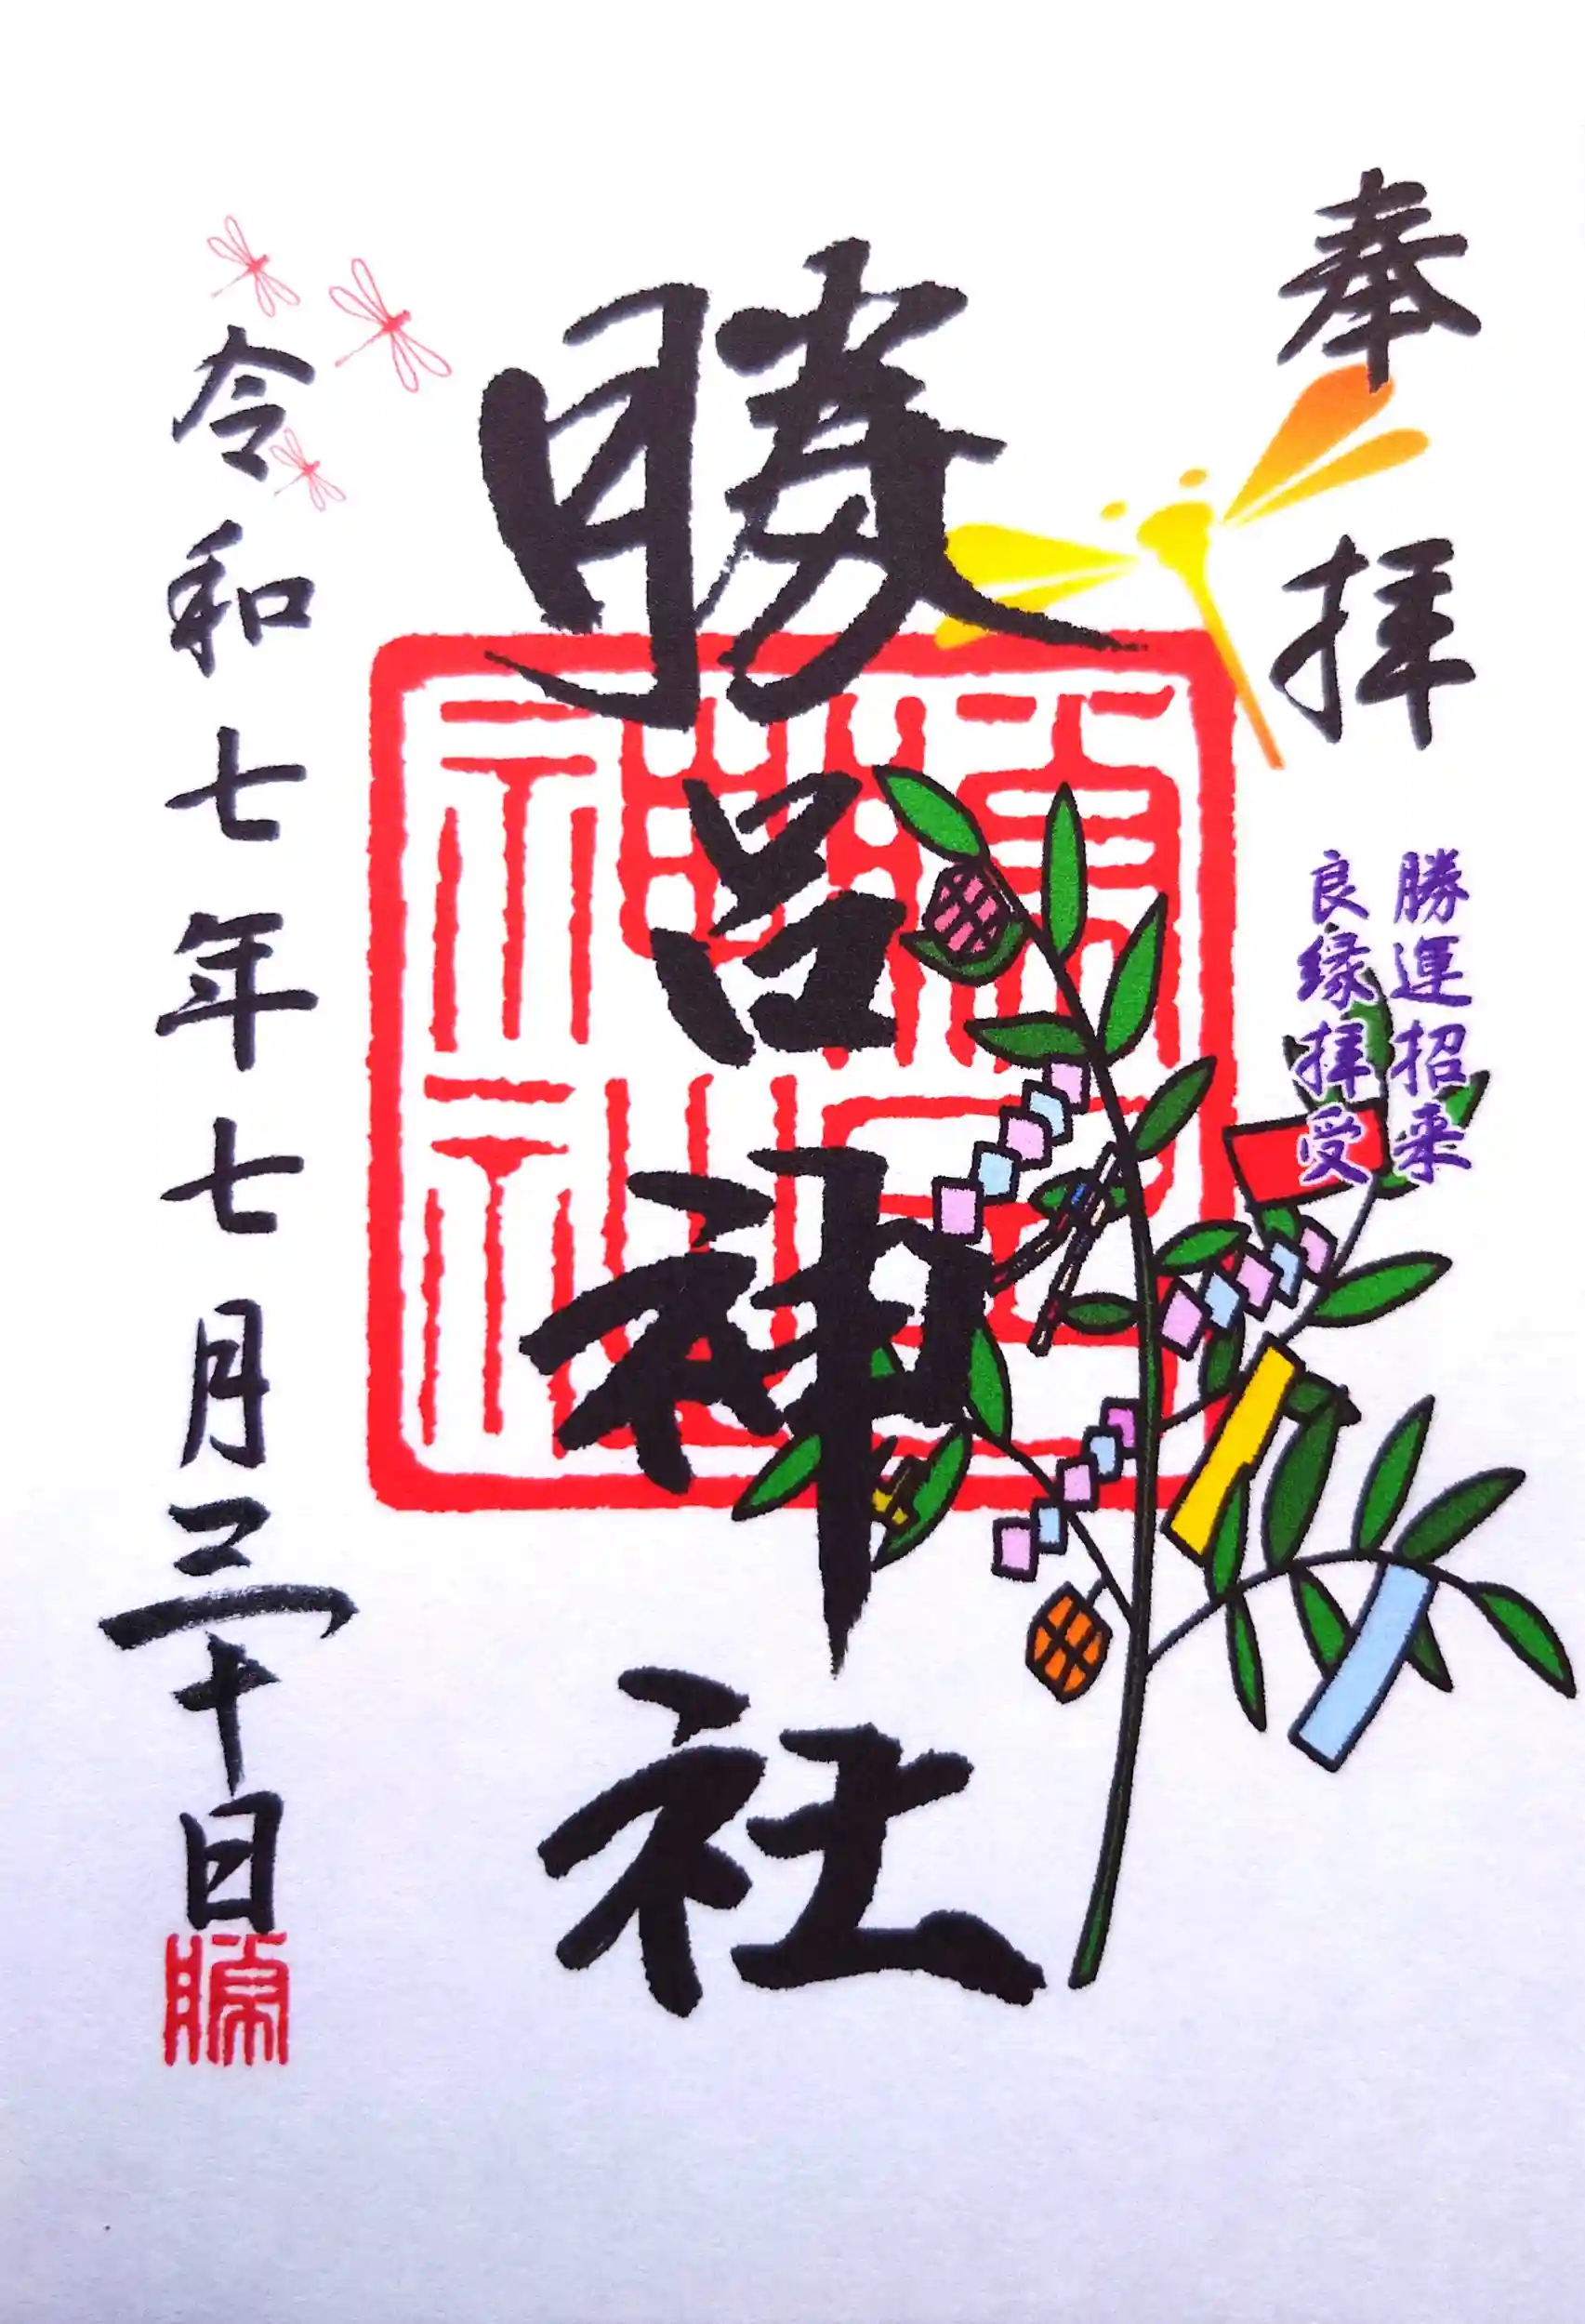 奉拝
勝運招来
良縁拝受
勝呂神社
勝呂神社
令和七年七月三十日
勝